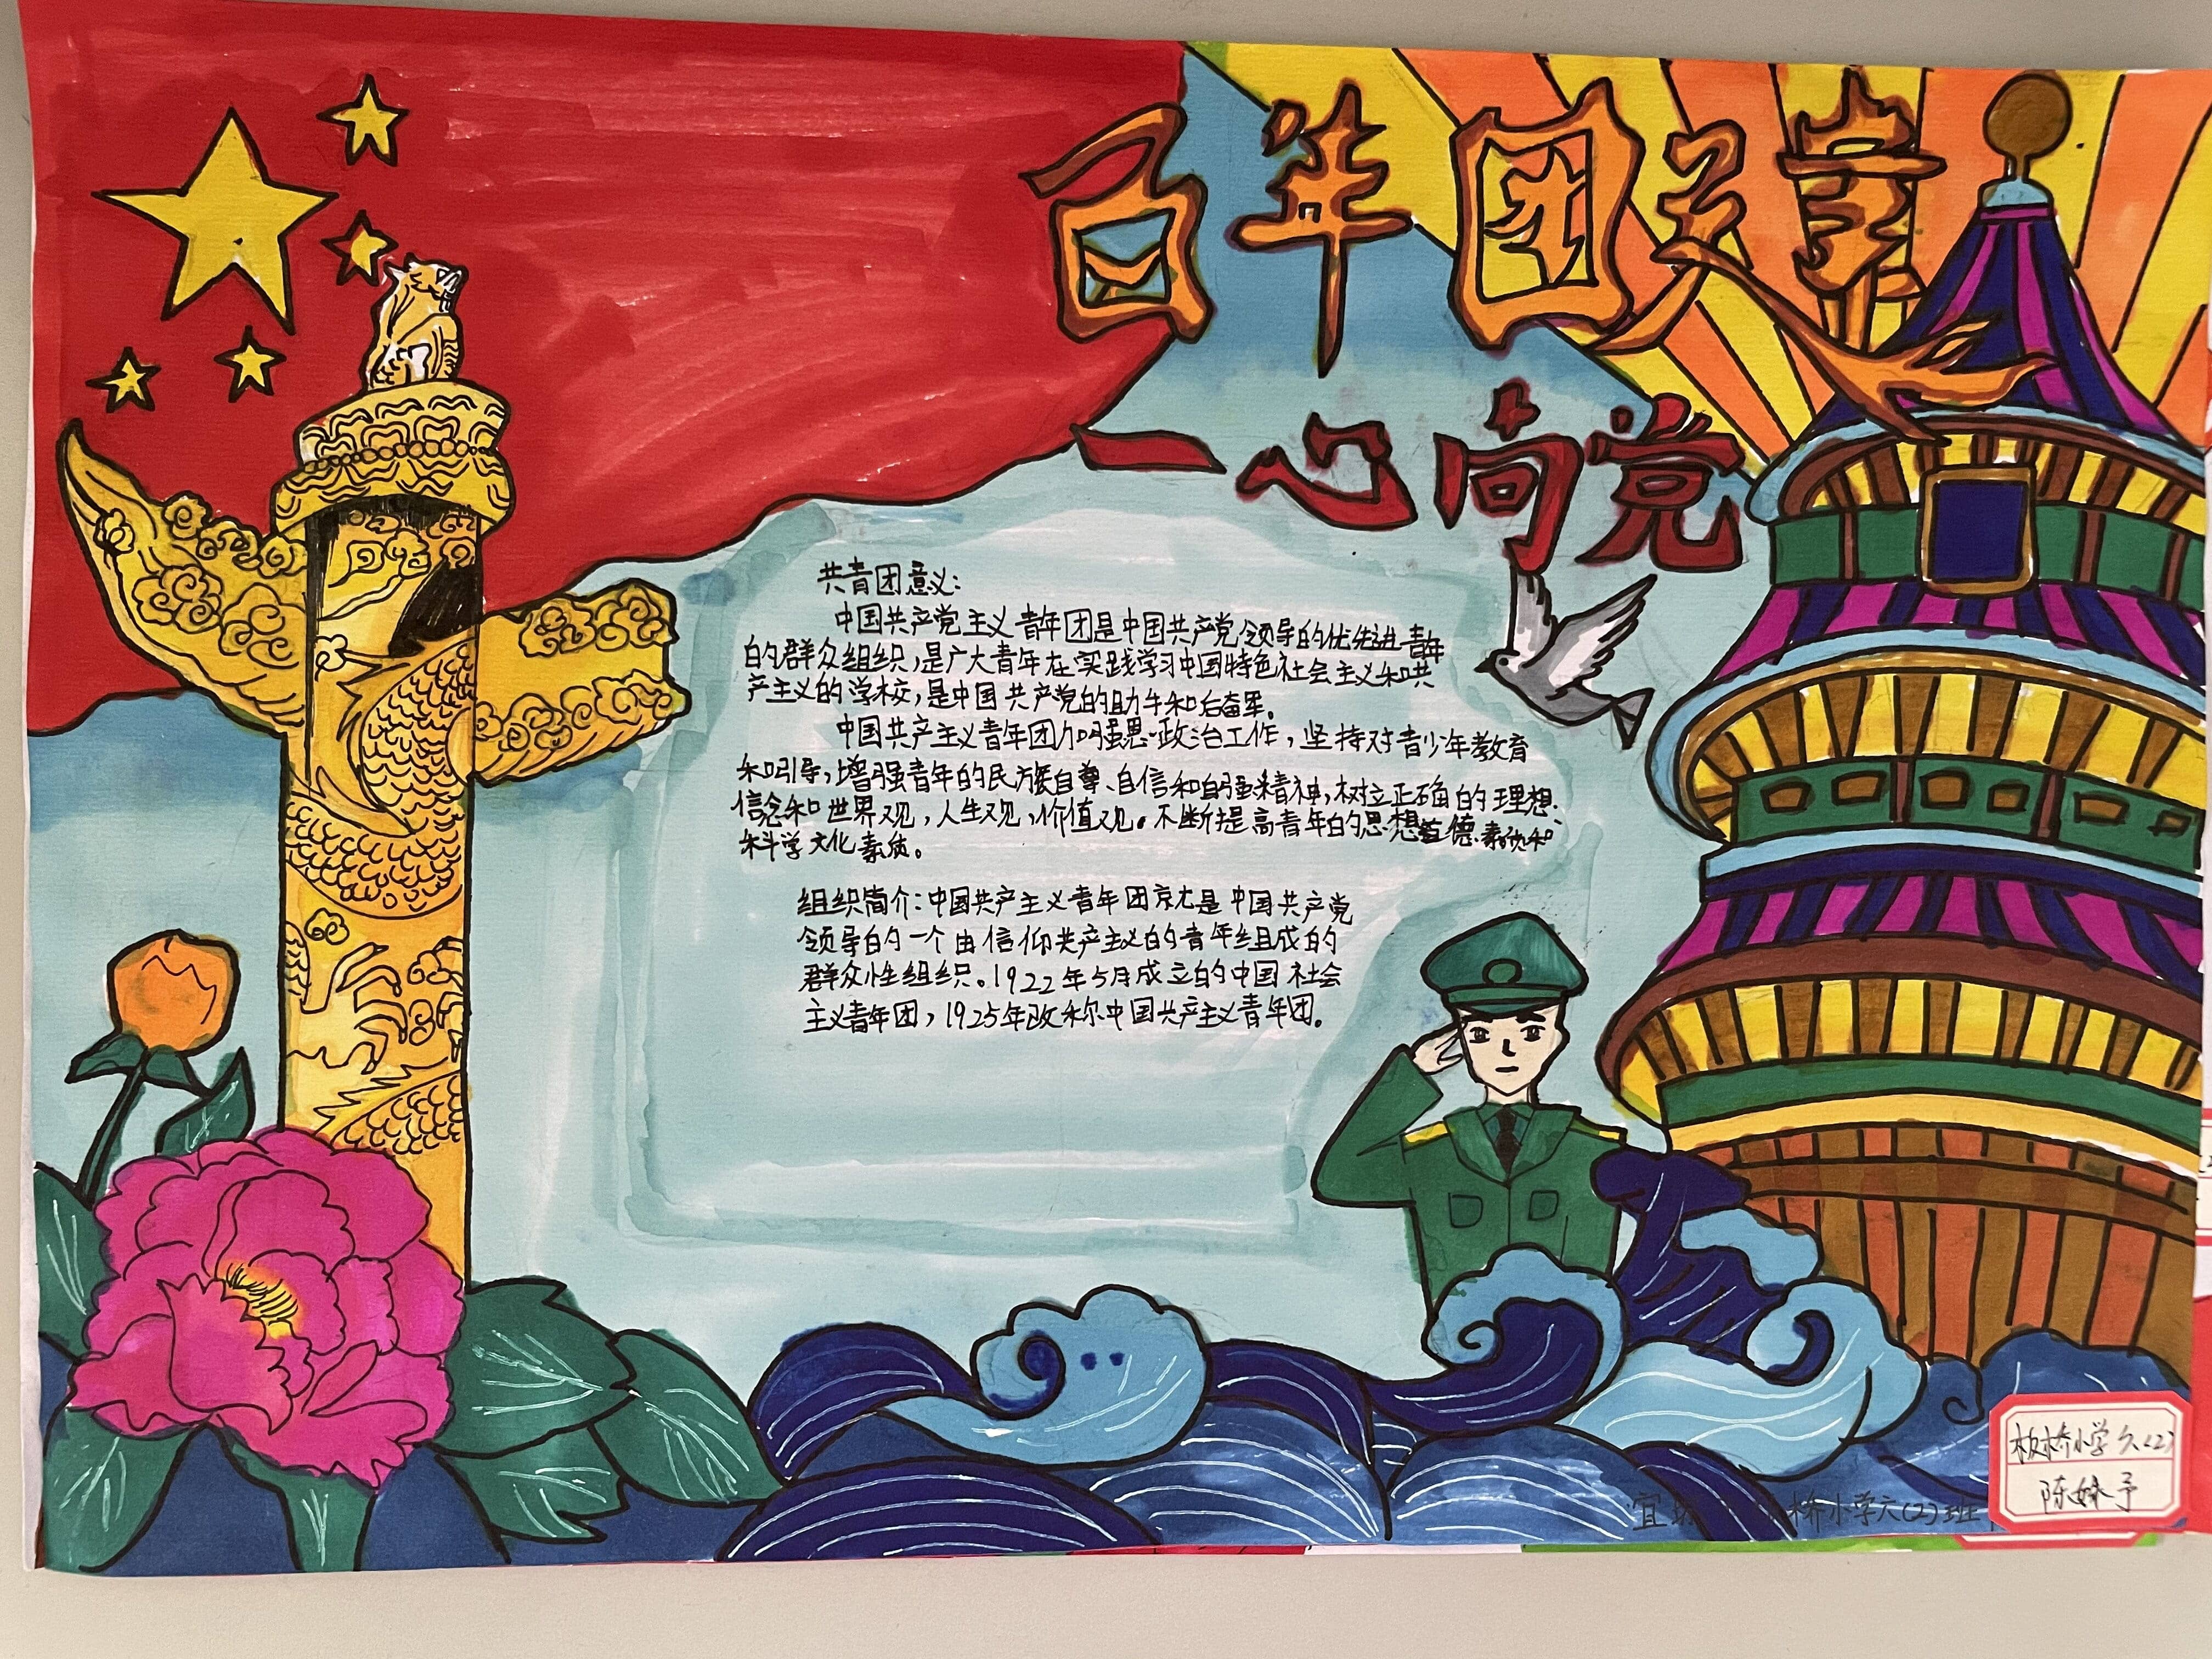 百年团史章
一心向党
共青团意义:
中国共产党主义青年团是中国共产党领导的优先进青年
的群众组织,是广大青年在实践学习中国特色社会主义和共
产主义的学校,是中国共产党的助手和后奋军。
中国共产主义青年团加强思政治工作,坚持对青少年教育
和引导,增强青年的民族自尊、自信和自强精神,树立正确的理想、
信念和世界观,人生观,价值观。不断提高青年的思想道德、素质和
科学文化素质。
组织简介:中国共产主义青年团京尤是中国共产党
领导的一个由信仰共产主义的青年组成的
群众性组织。1922年5月成立的中国社会
主义青年团,1925年改称中国共产主义青年团。
板桥小学六(2)
陈 予
宜 桥小学六(2)班